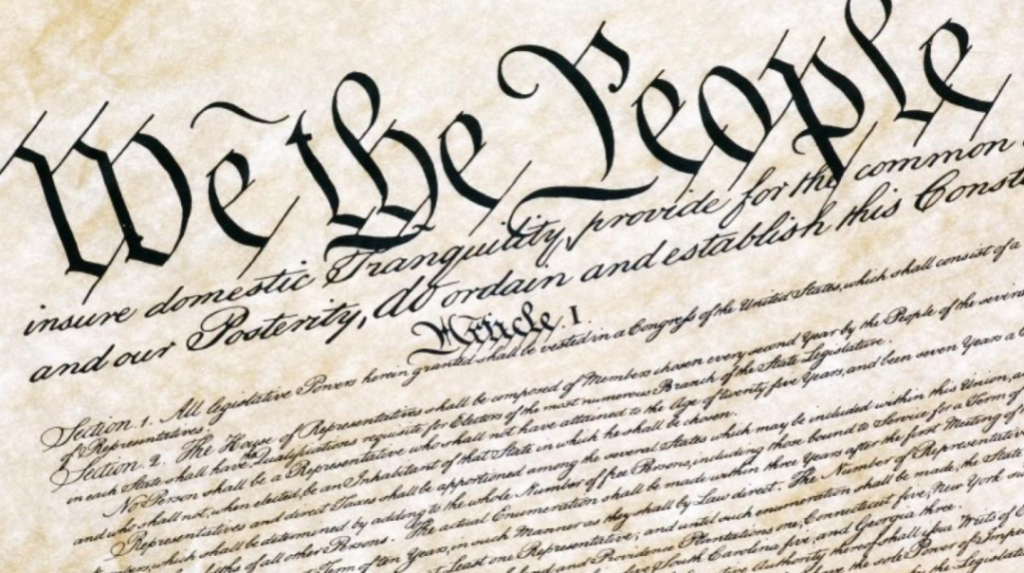 We the People
insure domestic Tranquility, provide for the common
and our Posterity, do ordain and establish this Const
Article. I.
Section. 1. All legislative Powers herein granted shall be vested in a Congress of the United States, which shall consist of a
of Representatives.
Section. 2. The House of Representatives shall be composed of Members chosen every second Year by the People of the several
in each State shall have the Qualifications requisite for Electors of the most numerous Branch of the State Legislature.
No Person shall be a Representative who shall not have attained to the Age of twenty five Years, and been seven Years a
and who shall not, when elected, be an Inhabitant of that State in which he shall be chosen.
Representatives and direct Taxes shall be apportioned among the several States which may be included within this Union,
which shall be determined by adding to the whole Number of free Persons, including those bound to Service for a Term of
of all other Persons. The actual Enumeration shall be made within three Years after the first Meeting of
Term of ten Years, in such Manner as they shall by Law direct. The Number of Representatives
Least one Representative; and until such enumeration shall be made, the State
and Providence Plantations one, Connecticut five, New York
five, South Carolina five, and Georgia three.
Authority thereof shall issue Writs of
the sole Power of